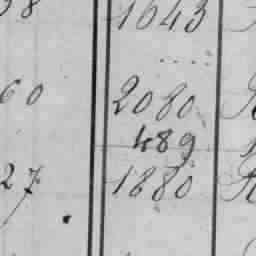 38 1643
60 2080
489
27 1880